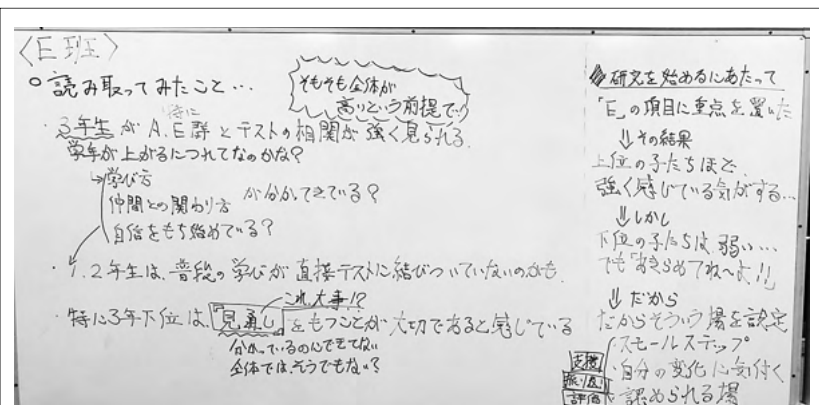 〈E班〉
○読み取ってみたこと…
そもそも全体が
高いという前提で
特に
・3年生がA、E群とテストの相関が強く見られる。
学年が上がるにつれてなのかな?
→学び方
仲間との関わり方
自信をもち始めている?
が分かってきている?
・1、2年生は、普段の学びが直接テストに結びついていないのかも。
これ大事!?
・特に3年下位は、「見通し」をもつことが大切であると感じている
分かっているのんできてない
全体では、そうでもない?
研究を始めるにあたって
「E」の項目に重点を置いた
⇓その結果
上位の子たちほど、
強く感じている気がする…
⇓しかし
下位の子たちは、弱い…
でも「あきらめてね〜よ!!」
⇓だから
だからそういう場を設定
・スモールステップ
・自分の変化に気付く
・認められる場
支援
振り返
評価